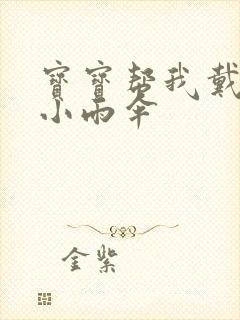 寶寶幫我戴
小雨伞
金紫